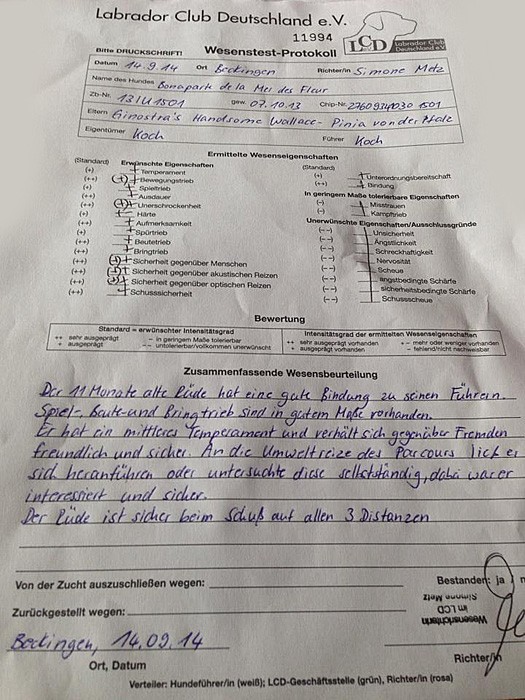 Labrador Club Deutschland e.V.
11994
LCD Labrador Club Deutschland e.V.
Bitte DRUCKSCHRIFT! Wesenstest-Protokoll
Datum 14.9.14 Ort Beckingen Richter/in Simone Metz
Name des Hundes Bonapark de la Mer des Fleur
Zb-Nr. 131U1501 gew. 07.10.13 Chip-Nr.
Eltern Ginostra's Handsome Wallace - Pinia von der Pfalz
Eigentümer Koch Führer Koch
Ermittelte Wesenseigenschaften
(Standard) Erwünschte Eigenschaften
(+) + Temperament
(++) (+)+ Bewegungstrieb
(+) + Spieltrieb
(++) + Ausdauer
(++) (+)+ Unerschrockenheit
(+) + Härte
(++) + Aufmerksamkeit
(+) + Spürtrieb
(++) + Beutetrieb
(++) + Bringtrieb
(++) (+)+ Sicherheit gegenüber Menschen
(++) (+)+ Sicherheit gegenüber akustischen Reizen
(++) (+)+ Sicherheit gegenüber optischen Reizen
(++) + Schusssicherheit
(Standard)
(+) + Unterordnungsbereitschaft
(++) + Bindung
In geringem Maße tolerierbare Eigenschaften
(-) Misstrauen
(-) Kampftrieb
Unerwünschte Eigenschaften/Ausschlussgründe
(--) Unsicherheit
(--) Ängstlichkeit
(--) Schreckhaftigkeit
(--) Nervosität
(--) Scheue
(--) angstbedingte Schärfe
(--) sicherheitsbedingte Schärfe
(--) Schussscheue
Bewertung
Standard = erwünschter Intensitätsgrad
++ sehr ausgeprägt - in geringem Maße tolerierbar
+ ausgeprägt -- untolerierbar/vollkommen unerwünscht
Intensitätsgrad der ermittelten Wesenseigenschaften
++ sehr ausgeprägt vorhanden +- mehr oder weniger vorhanden
+ ausgeprägt vorhanden - fehlend/nicht nachweisbar
Zusammenfassende Wesensbeurteilung
Der 11 Monate alte Rüde hat eine gute Bindung zu seinen Führern.
Spiel-, Beute- und Bringtrieb sind in gutem Maße vorhanden.
Er hat ein mittleres Temperament und verhält sich gegenüber Fremden
freundlich und sicher. An die Umweltreize des Parcours ließ er
sich heranführen oder untersuchte diese selbstständig, dabei war er
interessiert und sicher.
Der Rüde ist sicher beim Schuß auf allen 3 Distanzen
Von der Zucht auszuschließen wegen: Bestanden: ja n
Zurückgestellt wegen:
Simone Metz
Wesensrichterin
im LCD
Beckingen, 14.09.14
Ort, Datum Richter/in
Verteiler: Hundeführer/in (weiß); LCD-Geschäftsstelle (grün), Richter/in (rosa)